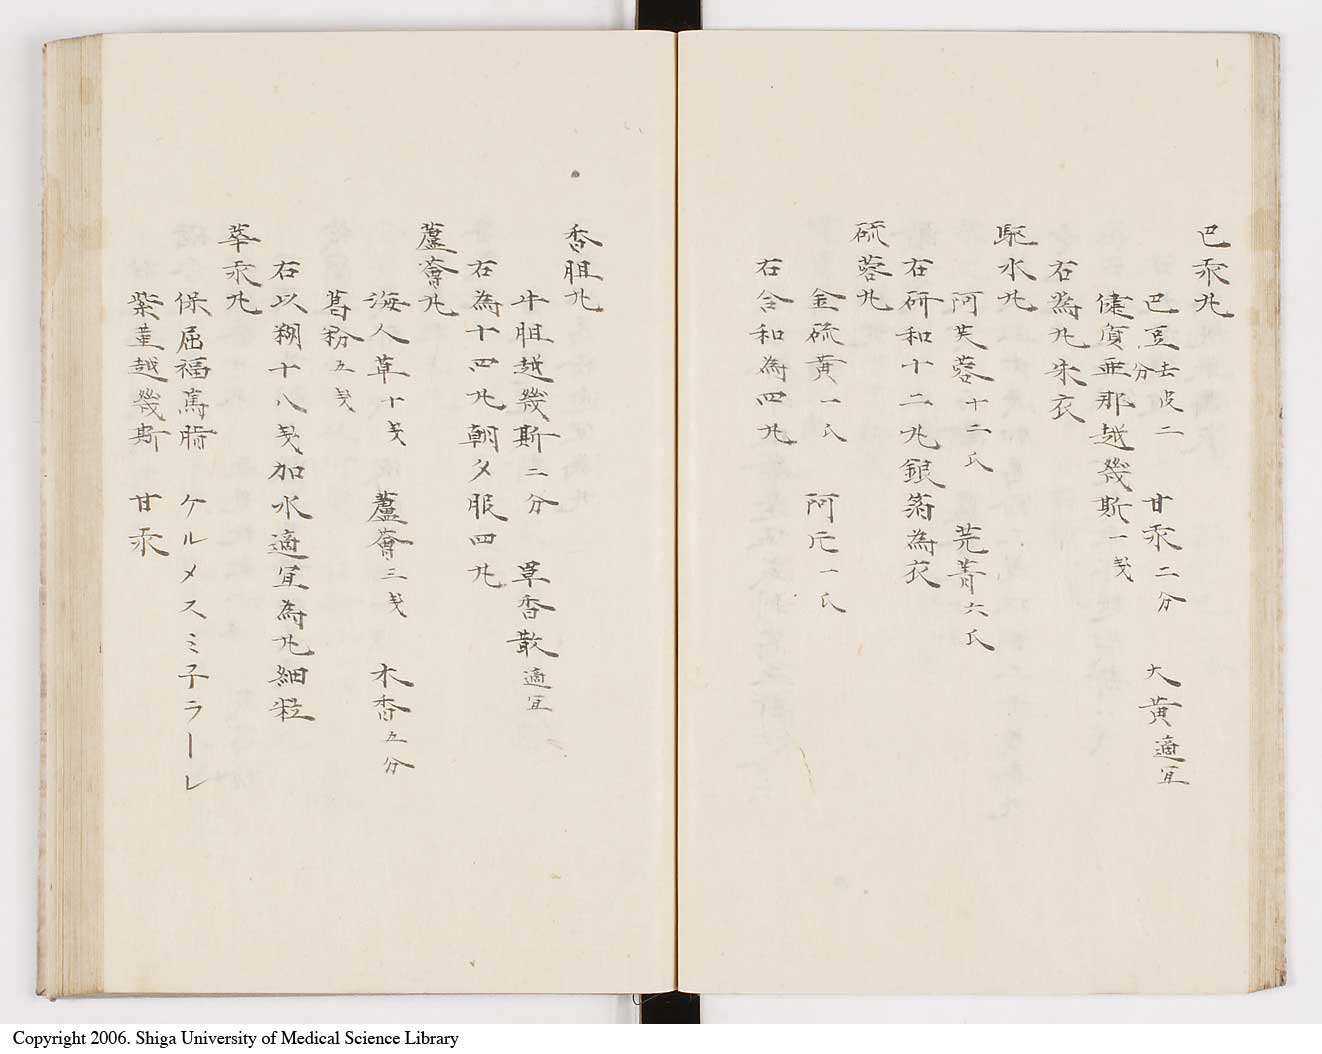 巴汞丸
巴豆去皮二分 甘汞二分 大黄適宜
健質亜那越幾斯一戔
右為丸朱衣
駆水丸
阿芙蓉十二氏 芫菁六氏
右研和十二丸銀箔為衣
硫蓉丸
金硫黄一氏 阿芢一氏
右合和為四丸
香胆丸
牛胆越幾斯二分 草香散適宜
右為十四丸朝夕服四丸
蘆薈丸
海人草十戔 蘆薈三戔 木香五分
葛粉五戔
右以糊十八戔加水適宜為丸細粒
莘汞丸
保屈福篤脂 ケルメスミ子ラーレ
紫菫越幾斯 甘汞
Copyright 2006. Shiga University of Medical Science Library